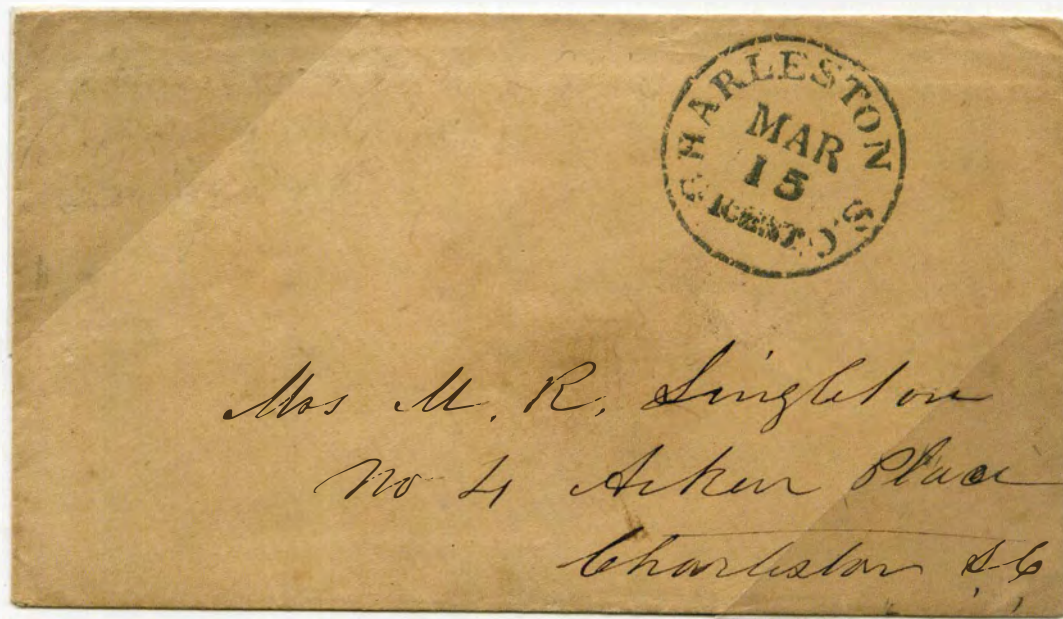 CHARLESTON S.C.
MAR
15
1 CENT.
Mrs M. R. Singleton
No 4 Aiken Place
Charleston S.C.